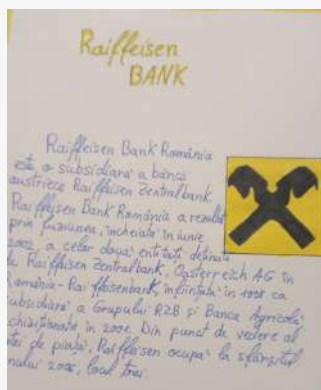 Raiffeisen
BANK
Raiffeisen Bank România
este o subsidiară a băncii
austriece Raiffeisen Zentralbank
Raiffeisen Bank România a rezultat
prin fuziunea, încheiată în iunie
2002, a celor două entităţi deţinute
de Raiffeisen Zentralbank, Oesterreich AG în
România - Raiffeisenbank, înfiinţată în 1998 ca
subsidiară a Grupului RZB şi Banca Agricolă
achiziţionată în 2001. Din punct de vedere al
cotei de piaţă, Raiffeisen ocupa la sfârşitul
anului 2006, locul trei.